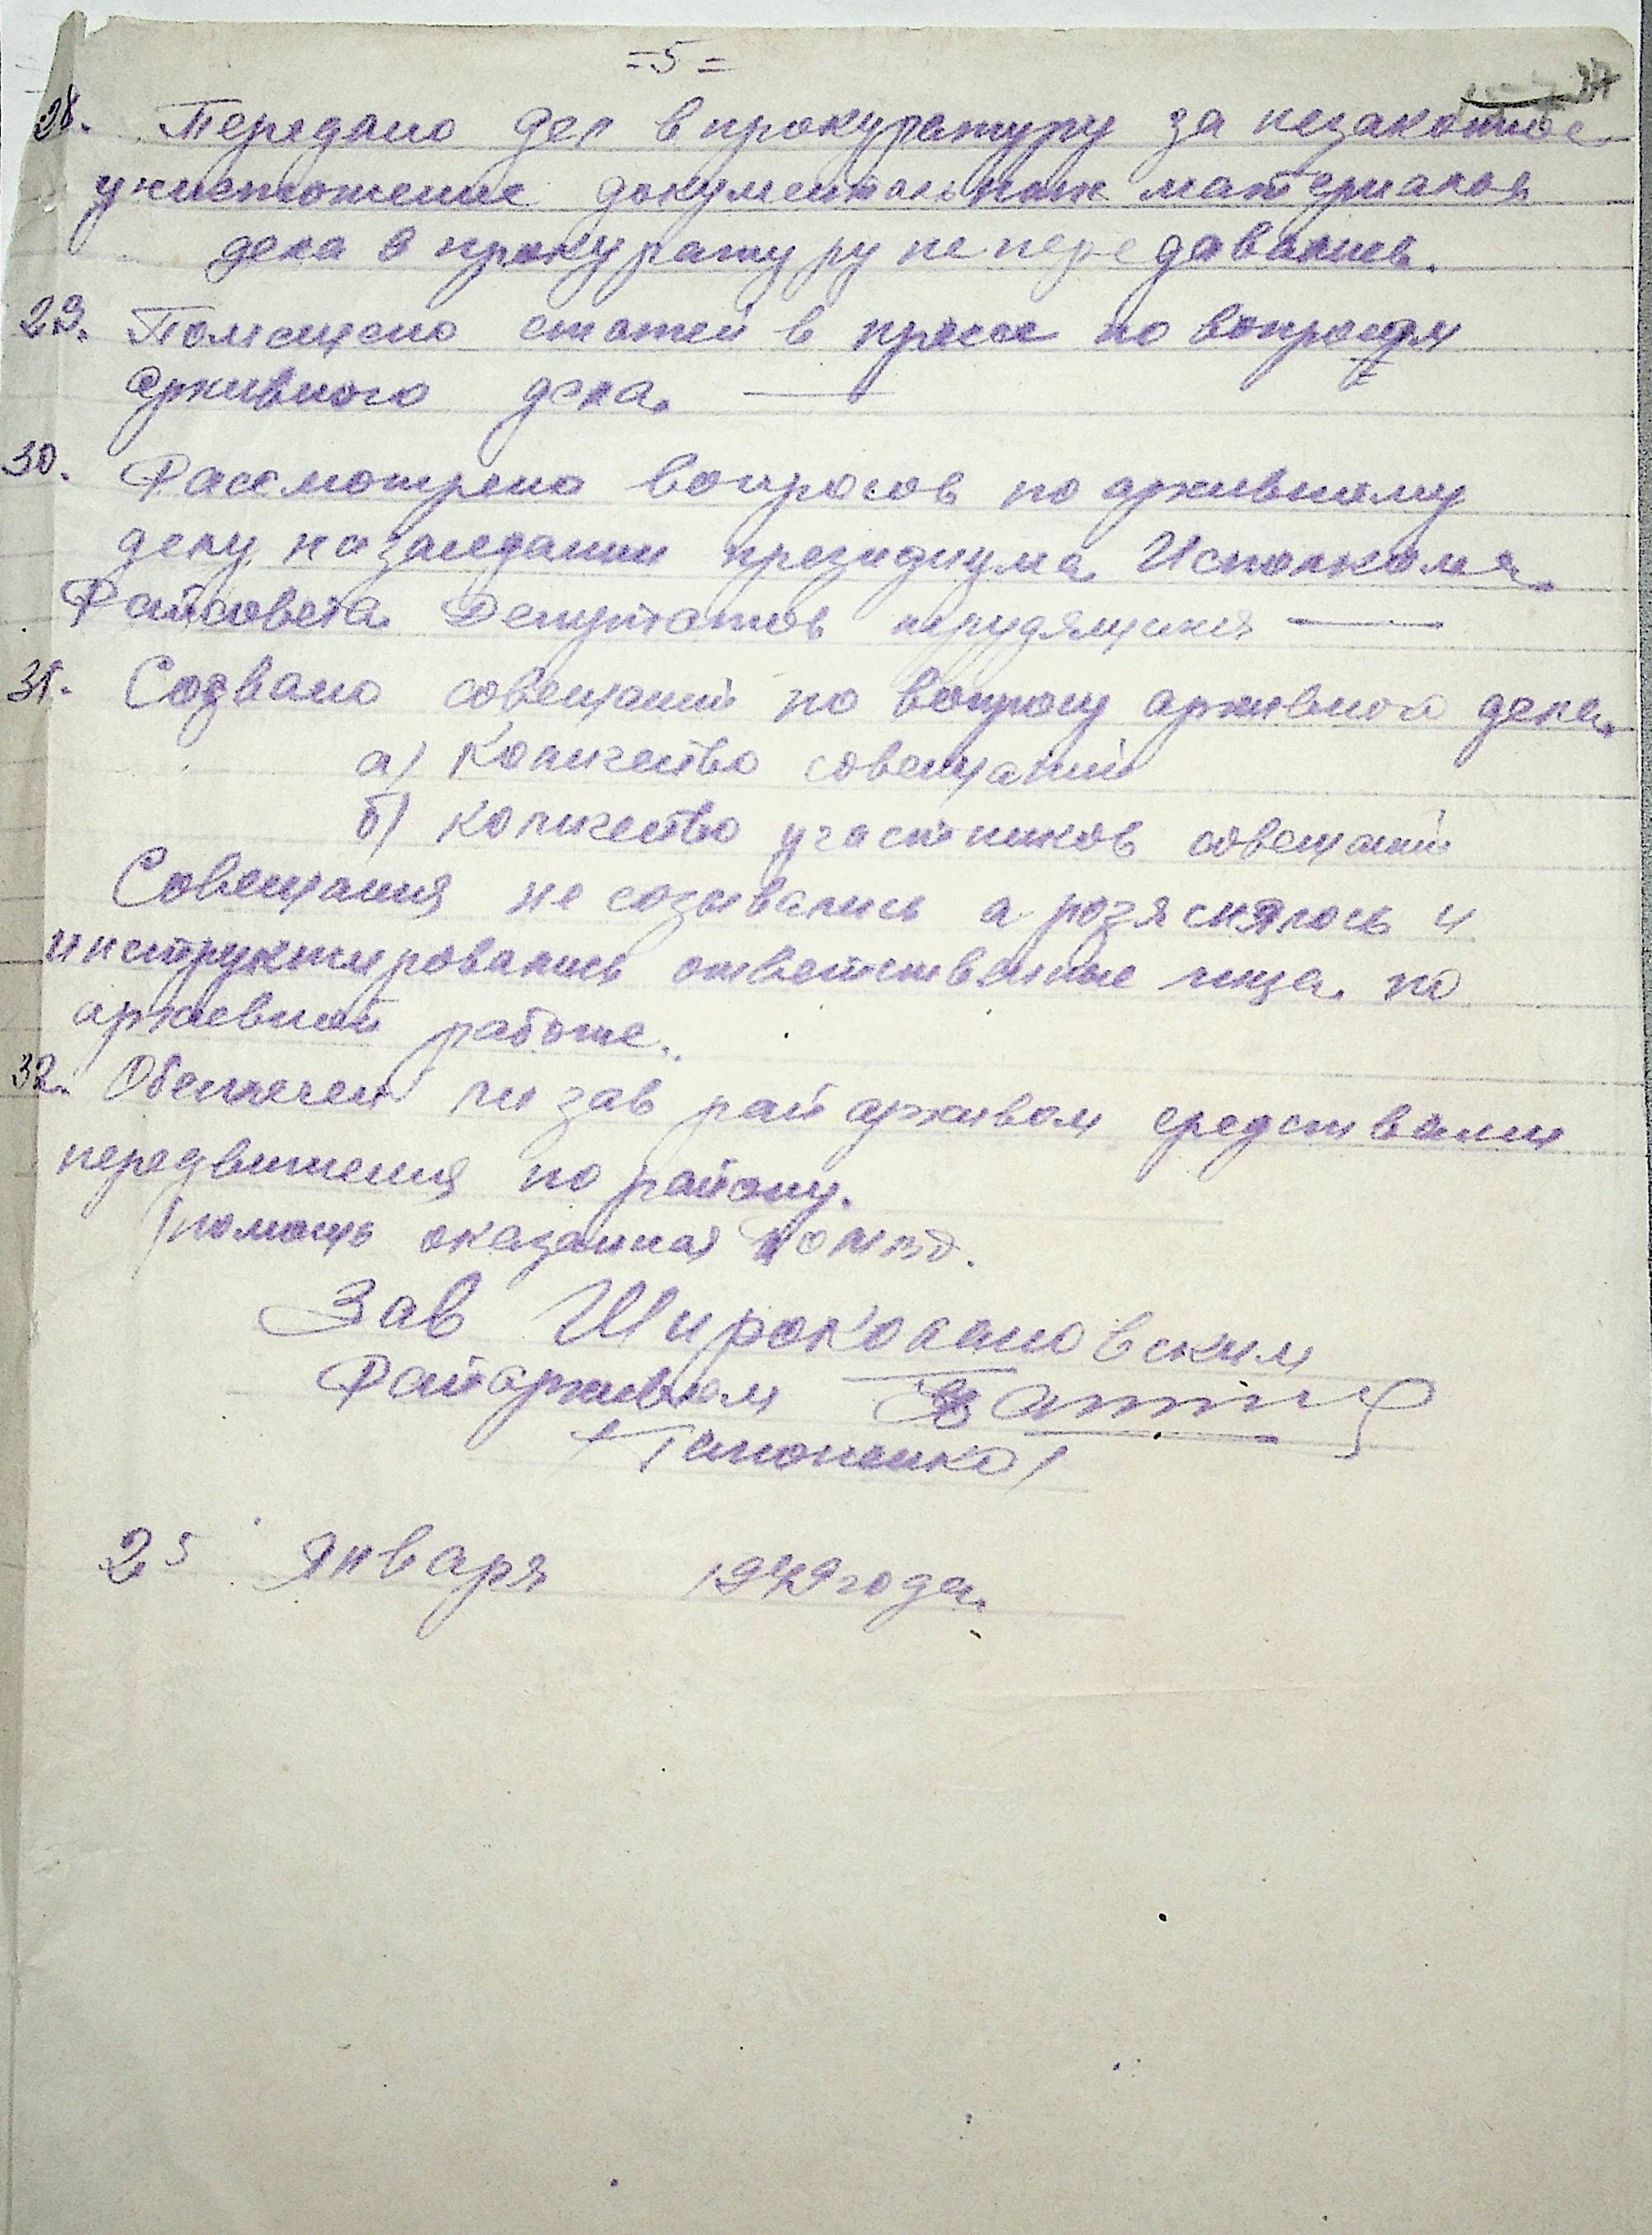 =5=
37
28. Передано дел в прокуратуру за незаконное
уничтожение документальных материалов
дела в прокуратуру не передавались.
29. Помещено статей в прессе по вопросам
архивного дела. —
30. Рассмотрено вопросов по архивному
делу на заседании президиума Исполкома
Райсовета Депутатов трудящихся —
31. Созвано совещаний по вопросу архивного дела.
а) Количество совещаний
б) количество участников совещаний
Совещания не созывались а розяснялось и
инструктировались ответственные лица по
архивной работе.
32. Обеспечен ли зав райархивом средствами
передвижения по району.
помощь оказанная
Зав Широколановским
Райархивом
/Гапоненко/
25 января 1949 года.